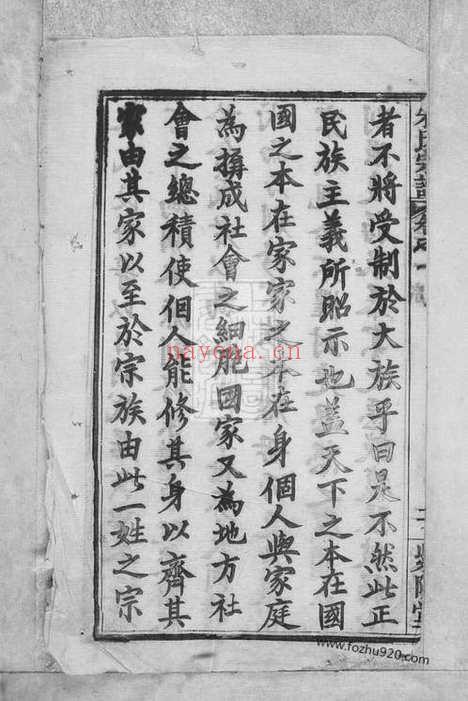 者不將受制於大族乎曰是不然此正
民族主義所昭示也蓋天下之本在國
國之本在家家之本在身個人與家庭
為搆成社會之細胞国家又為地方社
會之總積使個人能修其身以齊其
家由其家以至於宗族由此一姓之宗
nayona.cn
www.fozhu920.com